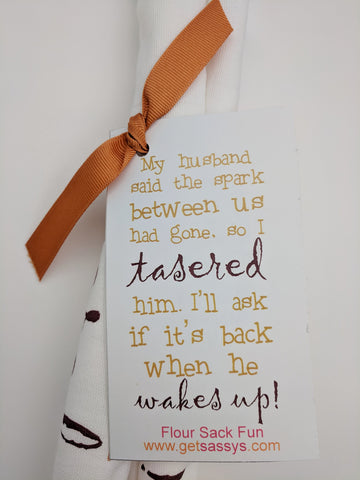 My husband
said the spark
between us
had gone, so I
tasered
him. I'll ask
if it's back
when he
wakes up!
Flour Sack Fun
www.getsassys.com